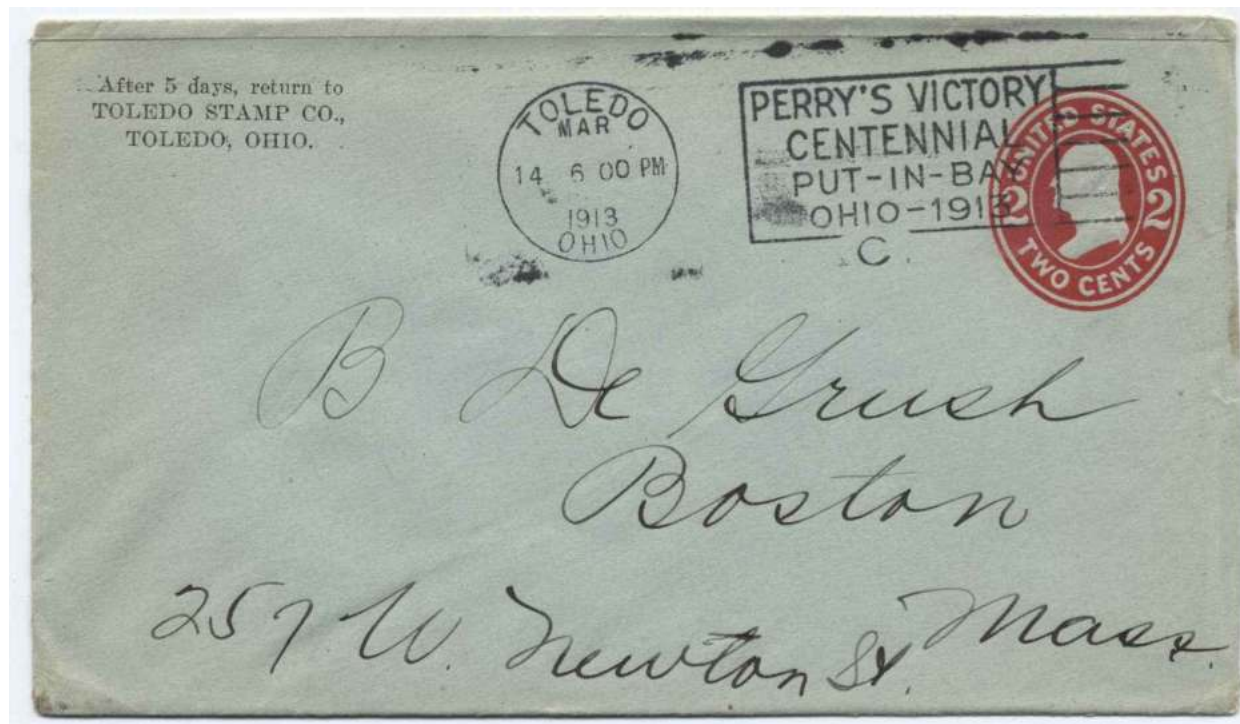 After 5 days, return to
TOLEDO STAMP CO.,
TOLEDO, OHIO.
TOLEDO
MAR
14 6 00 PM
1913
OHIO
PERRY'S VICTORY
CENTENNIAL
PUT-IN-BAY
OHIO-1913
C
UNITED STATES
2 2
TWO CENTS
B De Grush
Boston
257 W. Newton St. Mass.